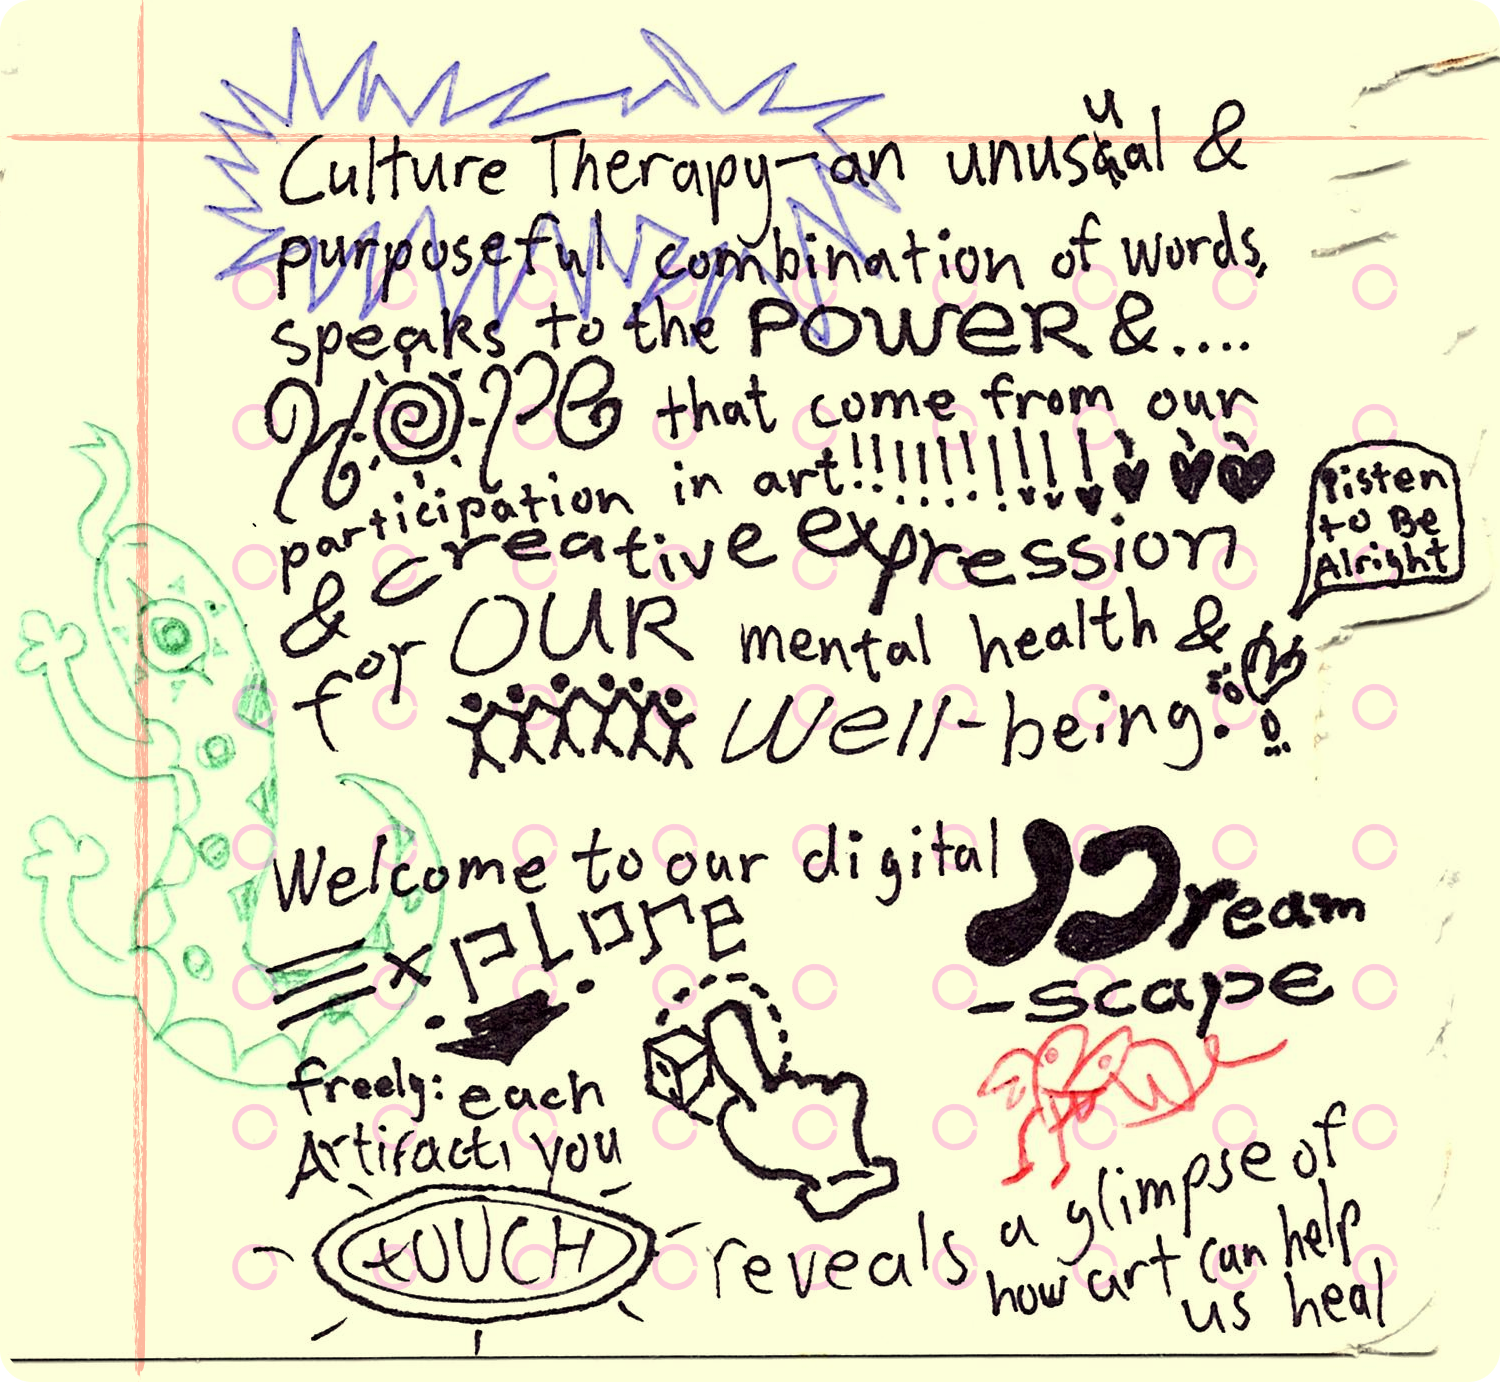 Culture Therapy—an unusual &
purposeful combination of words,
speaks to the POWER &....
HOPE that come from our
participation in art!!!!!!!!!!!
& creative expression
for OUR mental health &
Well-being.
Listen
to Be
Alright
Welcome to our digital Dream
-scape
Explore
freely: each
Artifact, you
tOUCH reveals a glimpse of
how art can help
us heal